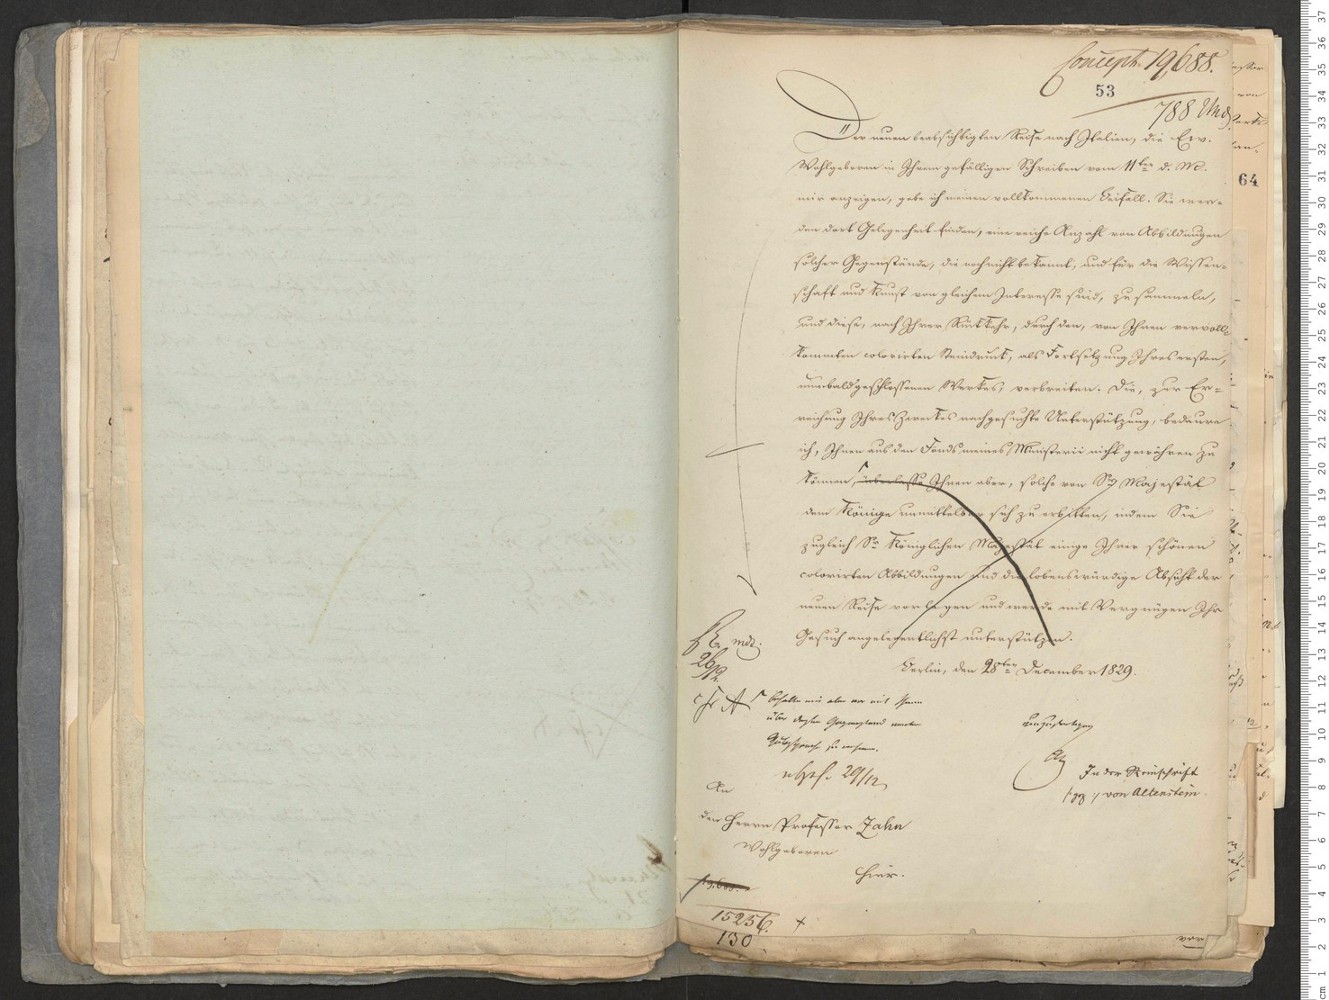 Concept. 19,688.
53
788
Der neuen beabsichtigten Reise nach Italien, die Ew.
Wohlgeboren in Ihrem gefälligen Schreiben vom 11ten d. M.
mir anzeigen, gebe ich meinen vollkommenen Beifall. Sie wer-
den dort Gelegenheit finden, eine reiche Anzahl von Abbildungen
solcher Gegenstände, die noch nicht bekannt, und für die Wissen-
schaft und Kunst von gleichem Interesse sind, zu sammeln,
und diese, nach Ihrer Rückkehr, durch den, von Ihnen vervoll-
kommten colorirten Steindruck, als Fortsetzung Ihres ersten,
nun bald geschlossenen Werkes, verbreiten. Die, zur Er-
reichung Ihres Zweckes nachgesuchte Unterstützung, bedaure
ich, Ihnen aus den Fonds meines Ministerii nicht gewähren zu
können, überlasse Ihnen aber, solche von Sr. Majestät
dem Könige unmittelbar sich zu erbitten, indem Sie
zugleich Sr. Königlichen Majestät einige Ihrer schönen
colorirten Abbildungen und die lobenswürdige Absicht der
neuen Reise vorlegen und werde mit Vergnügen Ihr
Gesuch angelegentlichst unterstützen.
Berlin, den 28ten December 1829.
26/12
behalte mir aber vor mit Ihnen
über diesen Gegenstand
Rücksprache zu nehmen.
29/12
In der Reinschrift
(:gez:) von Altenstein.
An
den Herrn Professor Zahn
Wohlgeboren
hier.
15256.
130
64